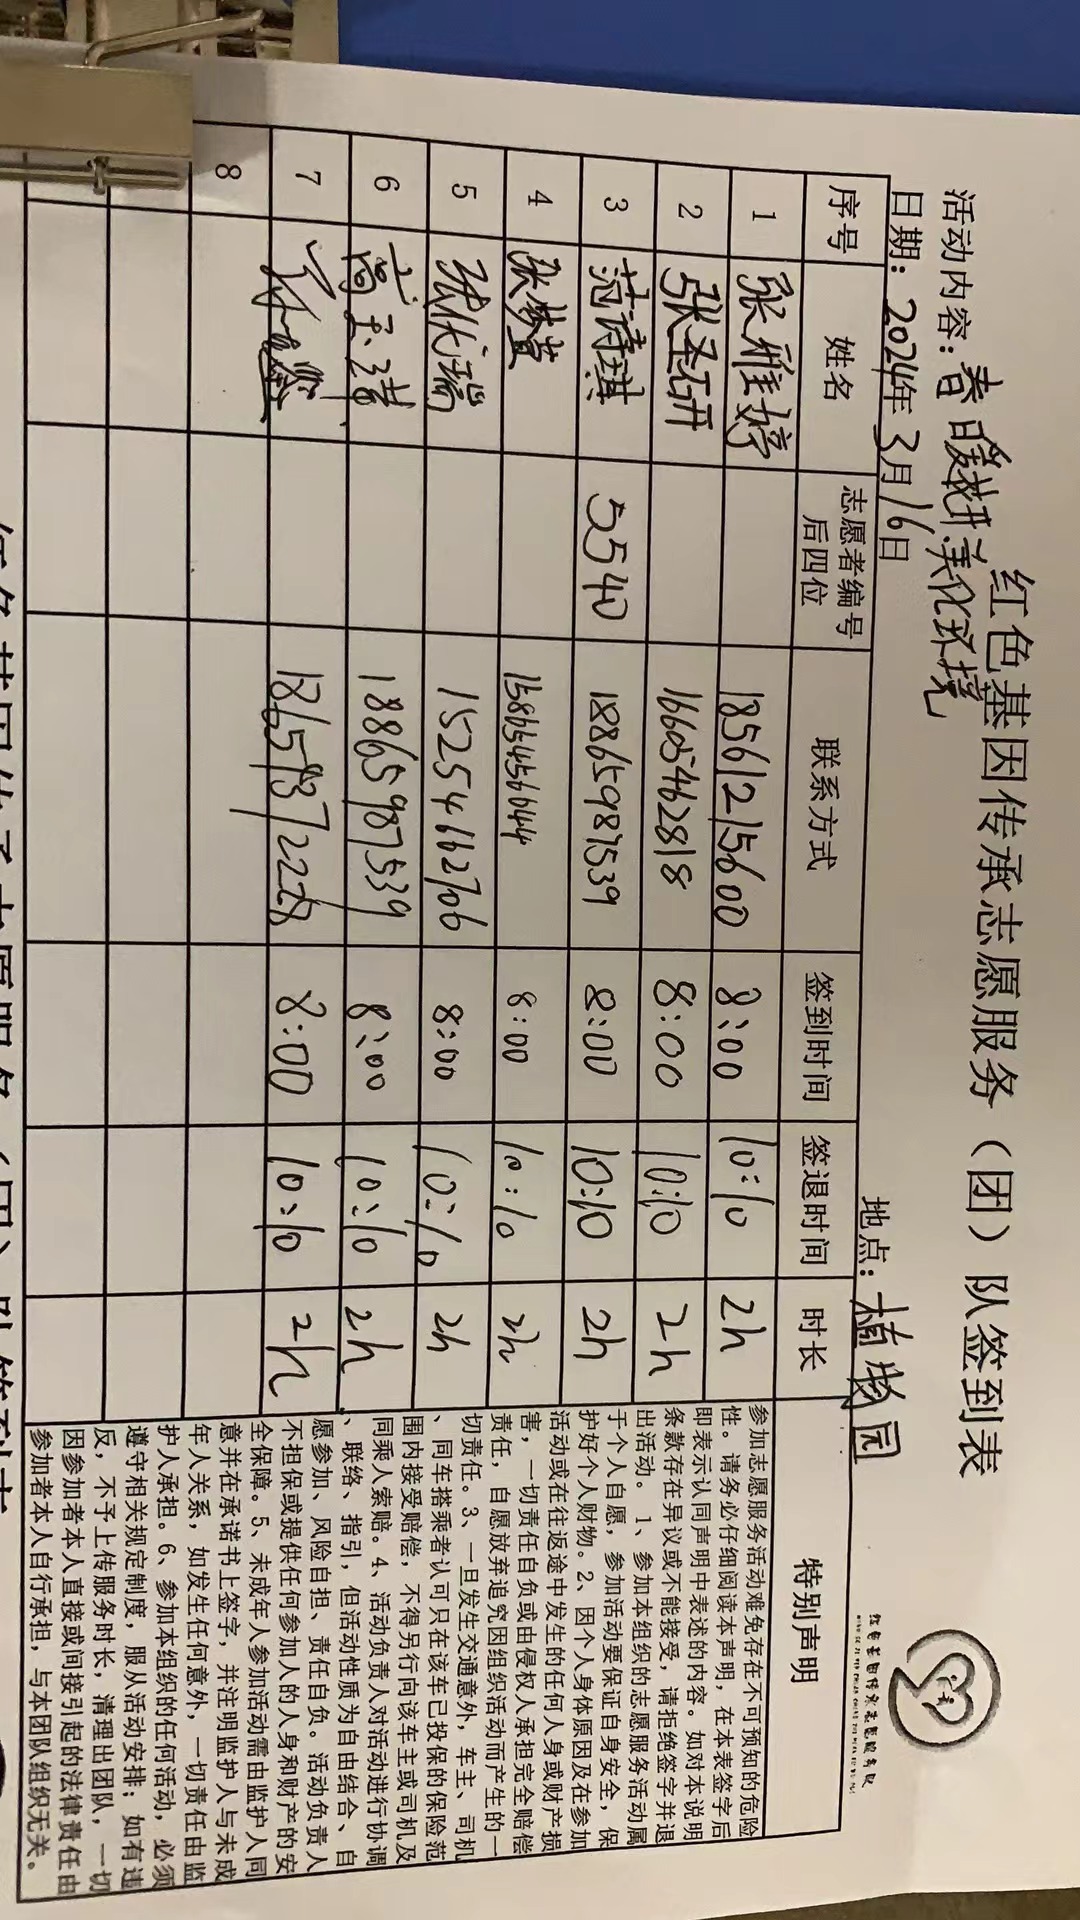 红色基因传承志愿服务（团）队签到表
活动内容：春日暖桃开.美化环境
日期：2024年3月16日 地点：植物园
序号 姓名 志愿者编号后四位 联系方式 签到时间 签退时间 时长 特别声明
1 张雅婷 18561215600 8:00 10:10 2h
2 张圣研 16605462818 8:00 10:10 2h
3 范诗琪 5540 18865987539 8:00 10:10 2h
4 张梦萱 15865456044 8:00 10:10 2h
5 张优瑞 15254662706 8:00 10:10 2h
6 18865987539 8:00 10:10 2h
7 8:00 10:10 2h
8
参加志愿服务活动难免存在不可预知的危险
性。请务必仔细阅读本声明，在本表签字后
即表示认同声明中表述的内容。如对本说明
条款存在异议或不能接受，请拒绝签字并退
出活动。1、参加本组织的志愿服务活动属
于个人自愿，参加活动要保证自身安全，保
护好个人财物。2、因个人身体原因及在参加
活动或在往返途中发生的任何人身或财产损
害，一切责任自负或由侵权人承担完全赔偿
责任，自愿放弃追究因组织活动而产生的一
切责任。3、一旦发生交通意外，车主、司机
、同车搭乘者认可只在该车已投保的保险范
围内接受赔偿，不得另行向该车主或司机及
同乘人索赔。4、活动负责人对活动进行协调
、联络、指引，但活动性质为自由结合、自
愿参加、风险自担、责任自负。活动负责人
不担保或提供任何参加人的人身和财产的安
全保障。5、未成年人参加活动需由监护人同
意并在承诺书上签字，并注明监护人与未成
年人关系，如发生任何意外，一切责任由监
护人承担。6、参加本组织的任何活动，必须
遵守相关规定制度，服从活动安排；如有违
反，不予上传服务时长，清理出团队，一切
因参加者本人直接或间接引起的法律责任由
参加者本人自行承担，与本团队组织无关。